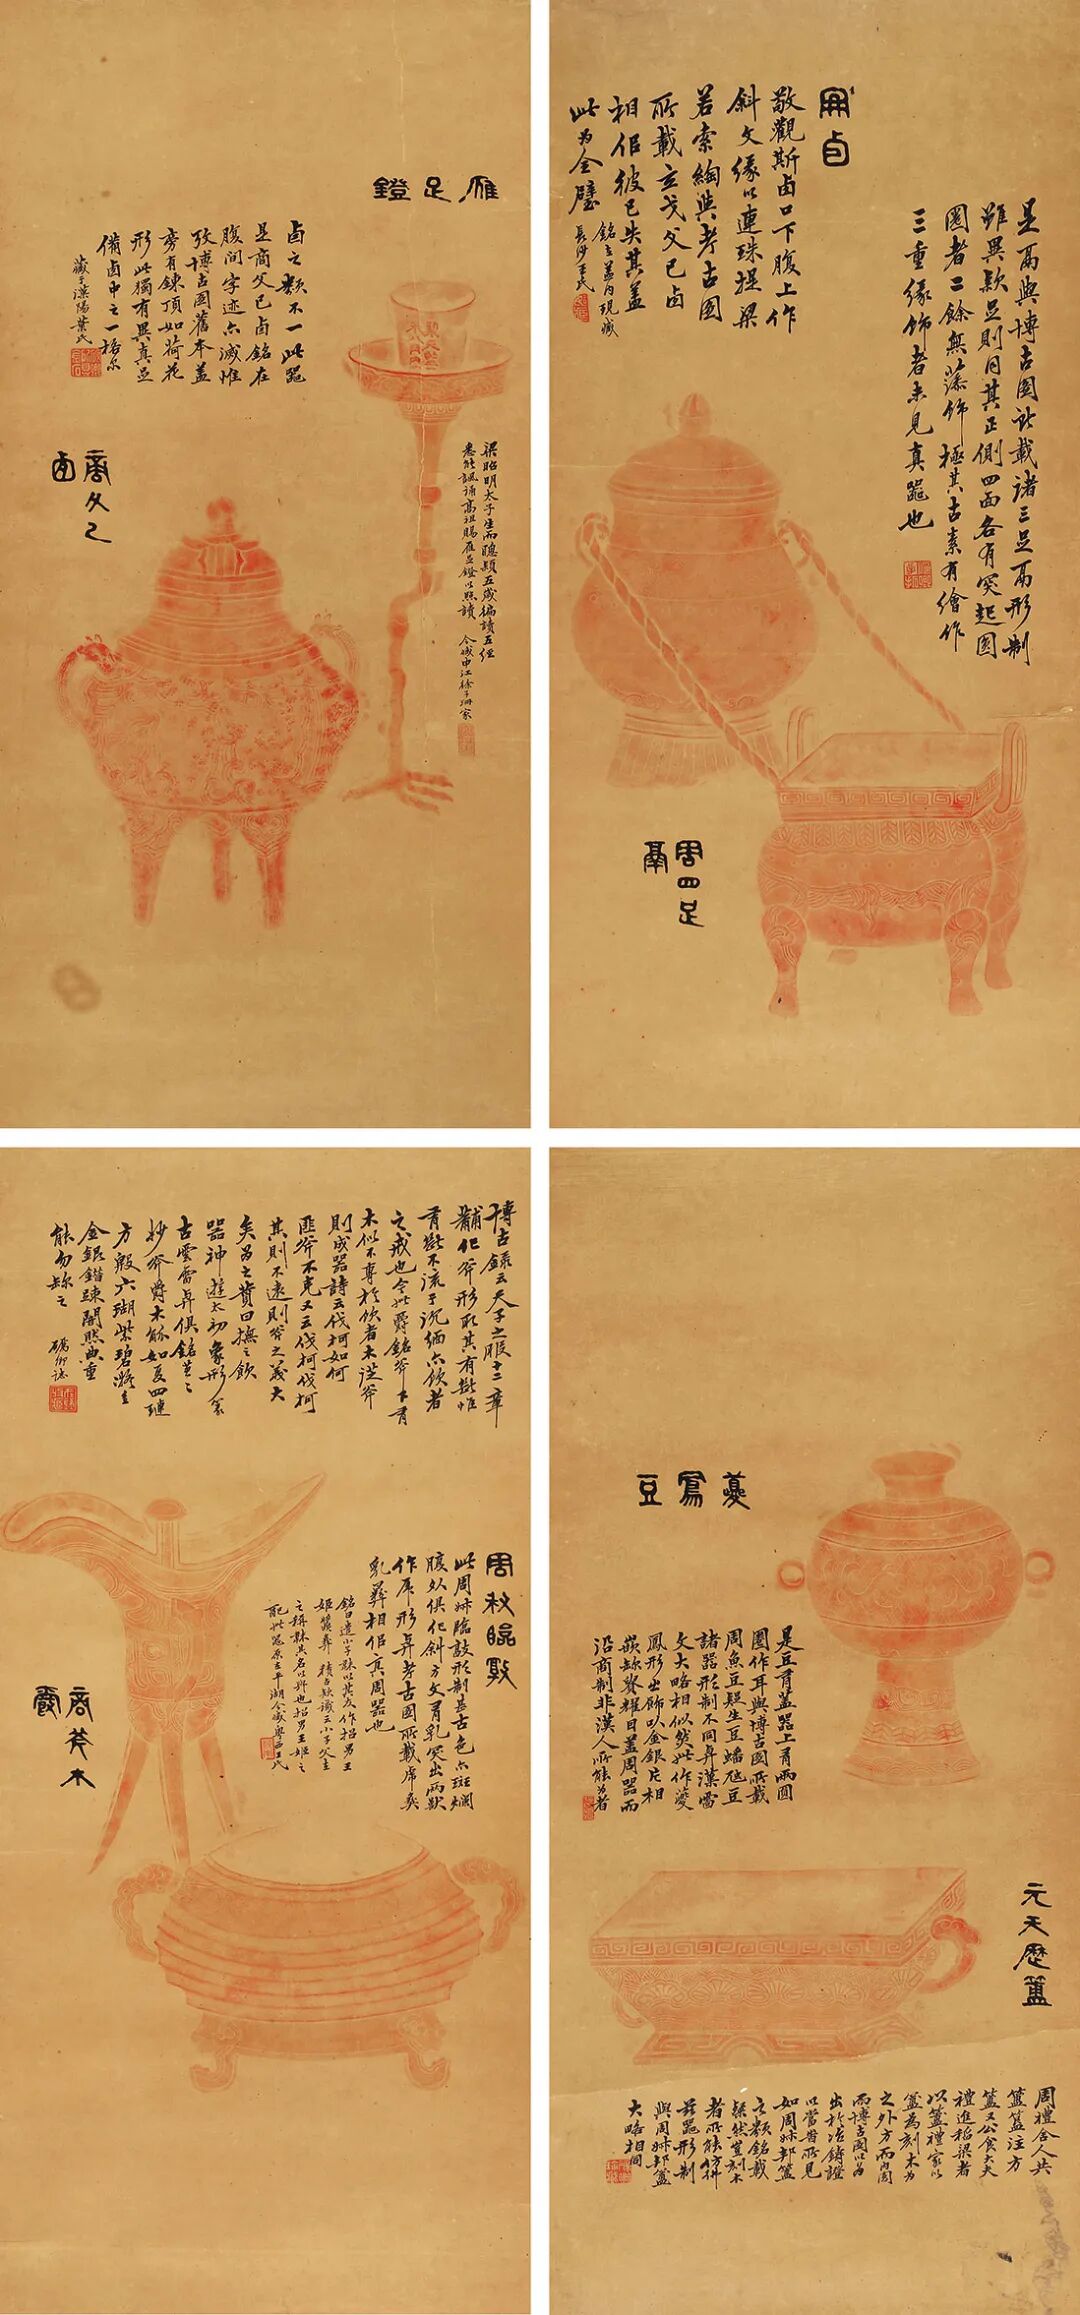 雁足鐙
卣之類不一此器
是商父己卣銘在
腹間字迹亦滅惟
攷博古圖舊本蓋
旁有鍊頂如荷花
形此獨有異真足
備卣中之一格尔
藏于漢陽葉氏
梁昭明太子生而聰穎五歲徧讀五經
悉能諷誦高祖賜雁足鐙以照讀
今藏申江徐子珊家
商父乙
卣
卣
敬觀斯卣口下腹上作
斜文緣以連珠提梁
若索綯與考古圖
所載立戈父己卣
相侣彼已失其蓋
此为全璧
銘在蓋内現藏
長沙王氏
是鬲與博古圖所載諸三足鬲形制
雖異款足則同其正側四面各有突起圓
圈者二餘無藻飾極其古素有繪作
三重緣飾者未見真器也
周四足
鬲
博古錄云天子之服十二章
黼作斧形取其有斷惟
有斷不流于沉湎亦飲者
之戒也今此爵銘斧下有
木似不專於飲者木從斧
則成器詩云伐柯如何
匪斧不克又云伐柯伐柯
其則不遠則斧之義大
矣为之贊曰撫之飲
器神遊太初象形篆
古雲雷彝俱銘著之
抄斧爵木觚如夏四璉
方殷六瑚紫碧凝重
金銀錯疎闇然典重
能勿珍之
周叔臨敦
此周叔臨敦形制甚古色亦斑斕
腹以俱作斜方文有乳突出兩獸
作耳形與考古圖所載虎彝
乳彝相侣真周器也
銘曰遣小子𩛥以其友作招男王
姬鷺彝
商斧木
爵
夔鳳
豆
是豆有蓋器上有兩圓
圈作耳與博古圖所載
周魚豆疑生豆蟠虺豆
諸器形制不同與漢雷
文大略相似然此作夔
鳳形出飾以金銀片相
嵌珍贊耀目蓋周器而
沿商制非漢人所能为者
元天歷簠
周禮舍人共
簠簋注方
簠又公食大夫
禮進稻粱者
以簠禮家以
簠为刻木为
之外方而内圓
而博古圖以为
出於冶鑄證
以當昔所見
如周叔邦簠
之類銘載
粲然豈刻木
者所能彷彿
茲器形制
與周叔邦簠
大略相同